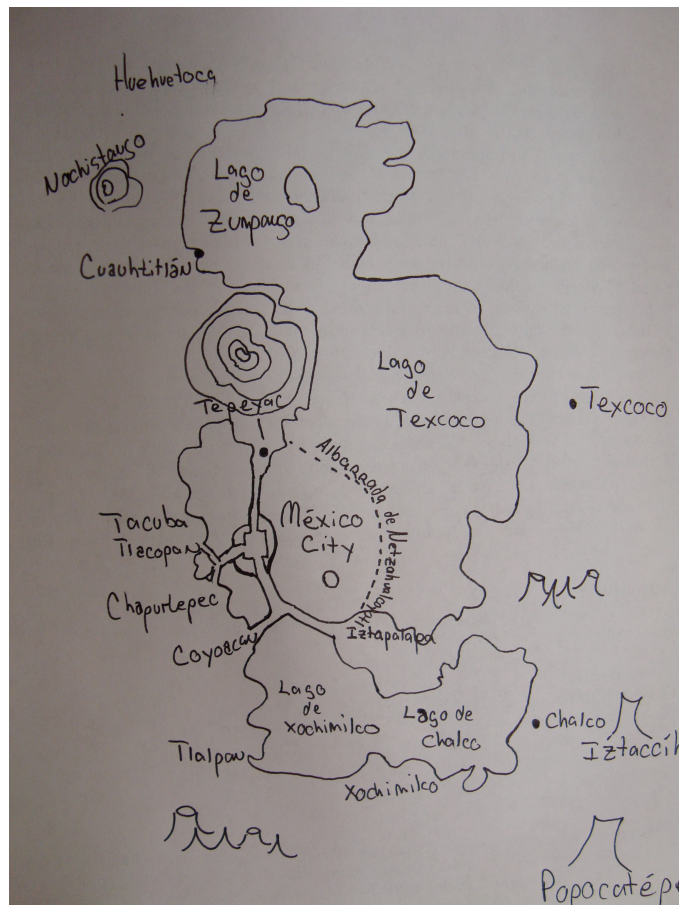 Huehuetoca
Nochistango
Lago
de
Zumpango
Cuauhtitlán
Lago
de
Texcoco
Tepeyac
Texcoco
Albarrada de Netzahualcoyotl
México
City
Tacuba
Tlacopan
Chapultepec
Coyoacan
Iztapalapa
Lago
de
Xochimilco
Lago de
Chalco
Chalco
Iztaccíh
Tlalpan
Xochimilco
Popocatépe